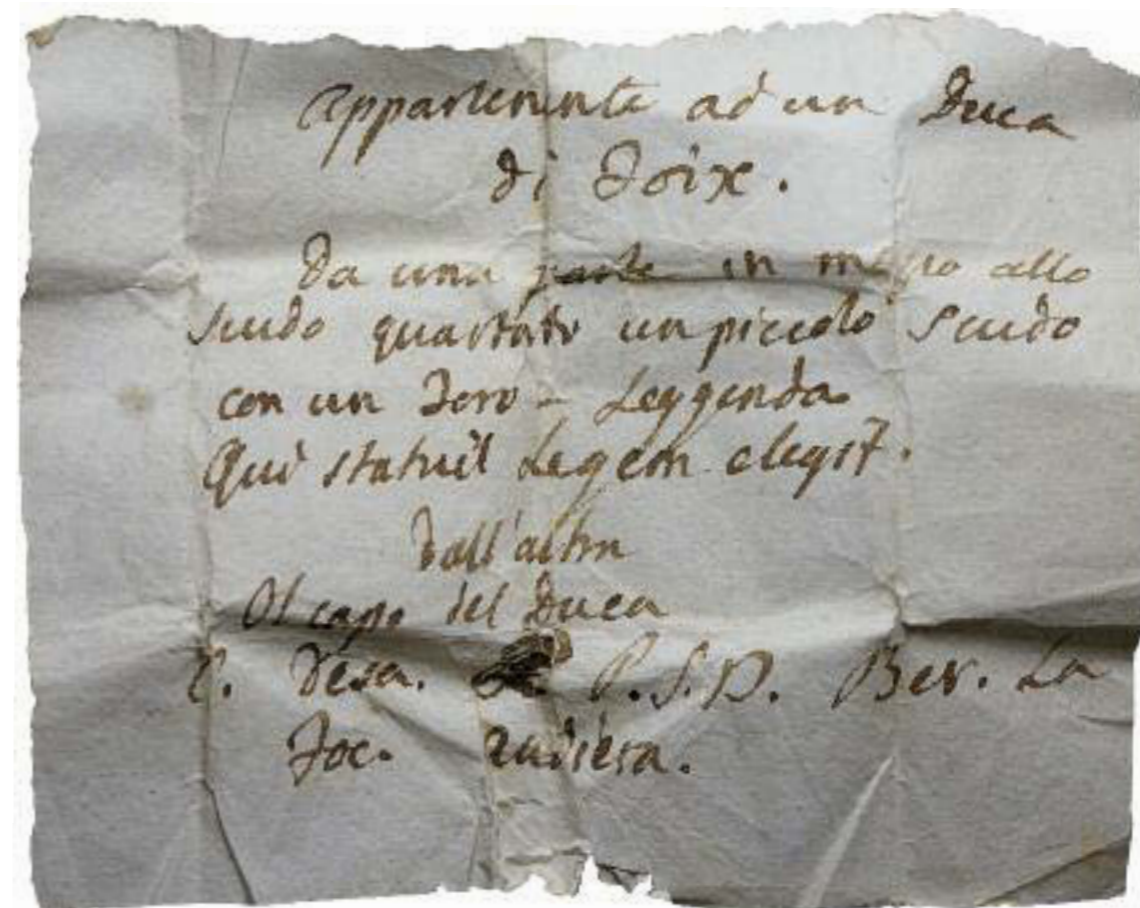 Appartenente ad un Duca
di Foix.
Da una parte in mezzo allo
scudo quartato un piccolo scudo
con un Toro - Leggenda
Qui statuit Legem elegit.
Dall'altra
Il capo del Duca
C. Desa. P.S.D. Ber. La
Foc. Audiera.